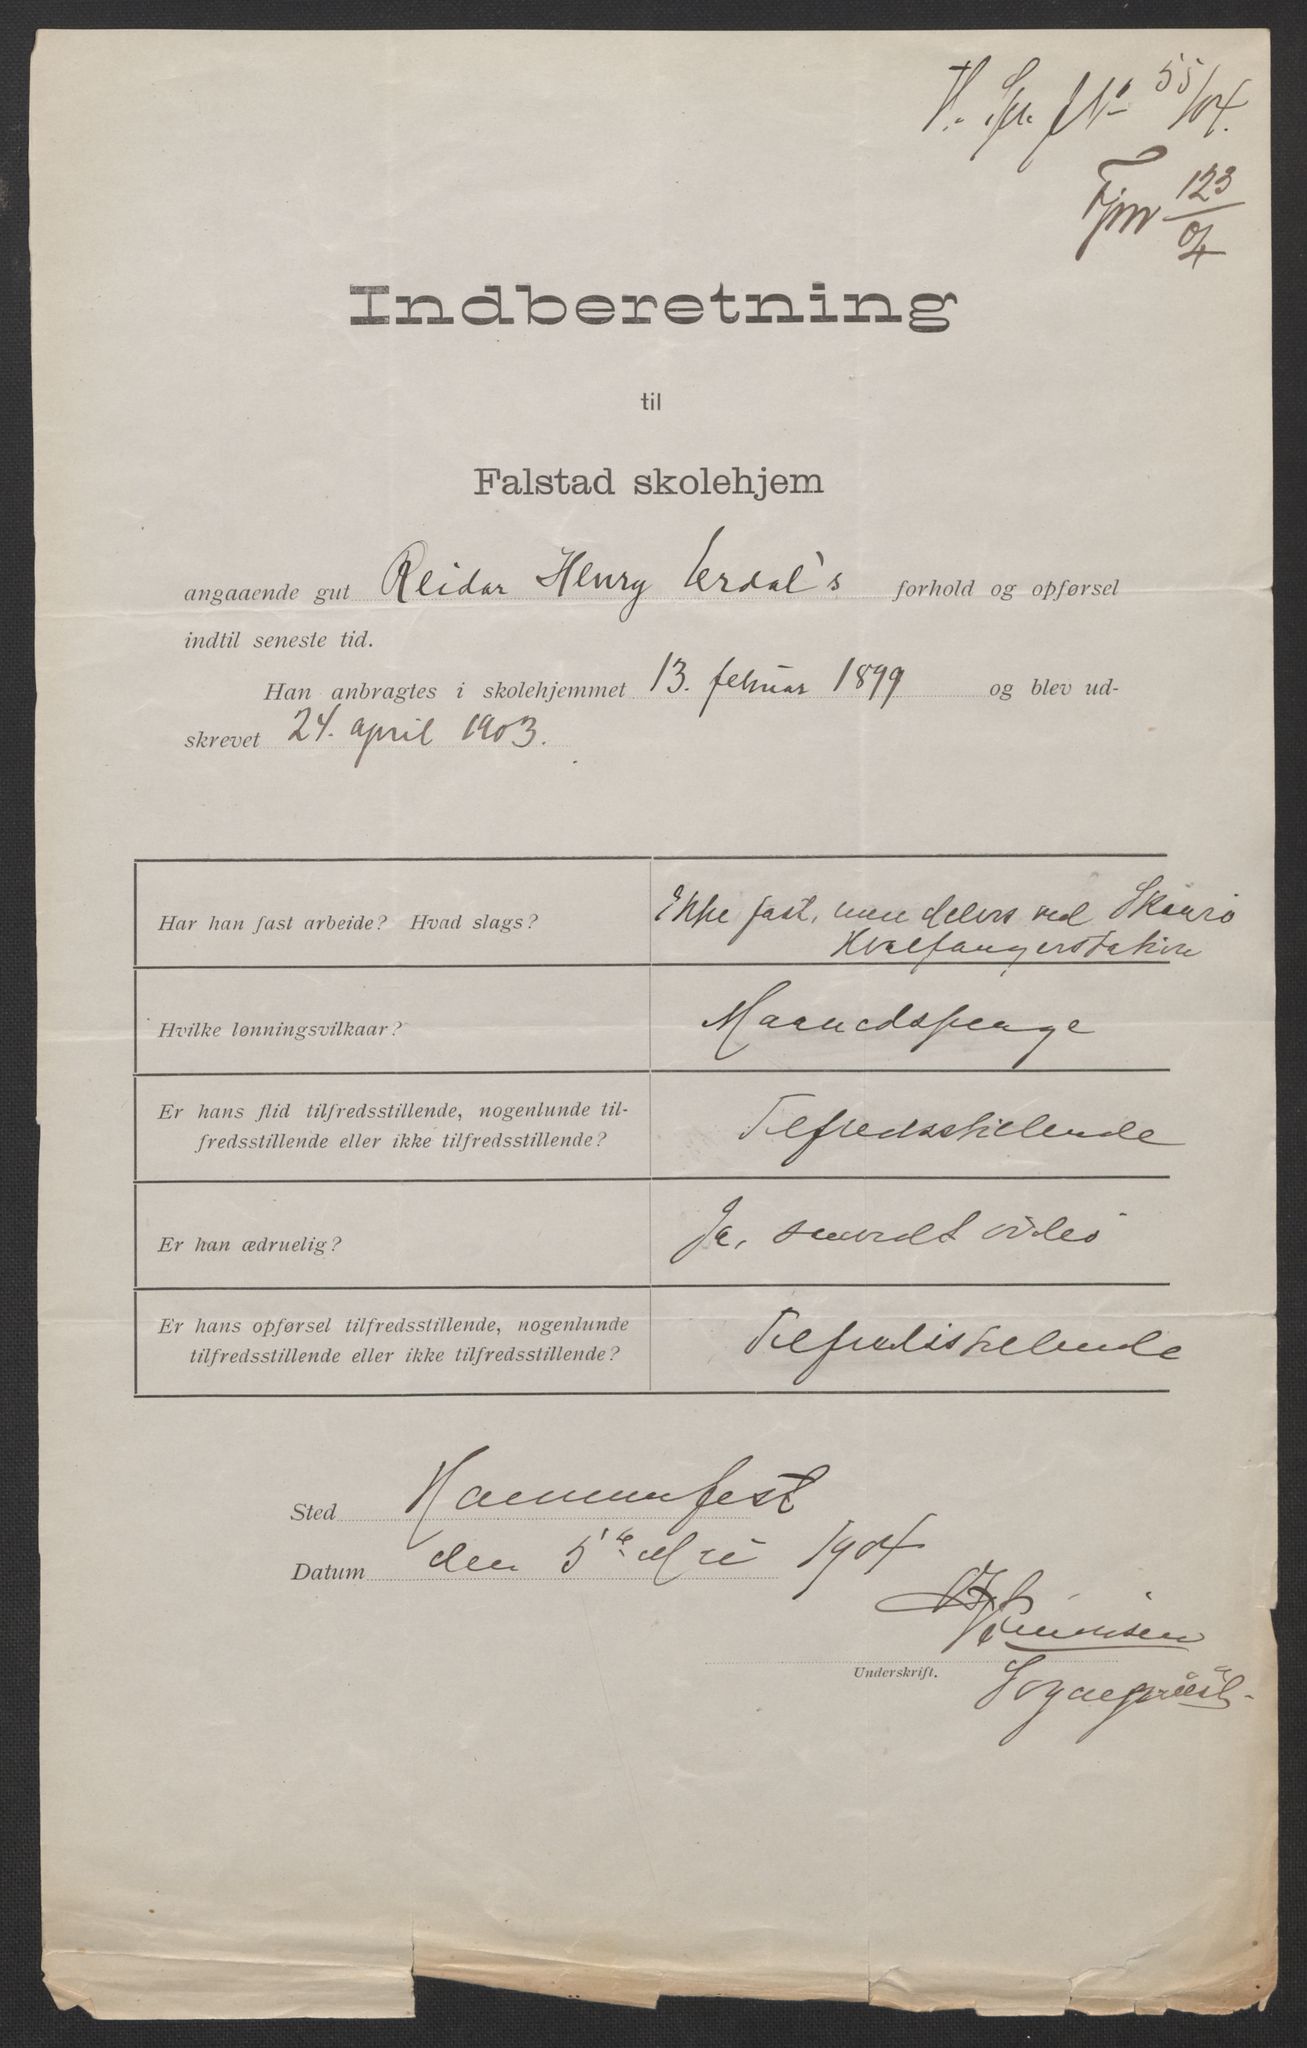 H. Spr. J No 55/04.
Fjm 123/04
Indberetning
til
Falstad skolehjem
angaaende gut Reidar Henry Erdal's forhold og opførsel
indtil seneste tid.
Han anbragtes i skolehjemmet 13. februar 1899 og blev ud-
skrevet 24. april 1903.
Har han fast arbeide? Hvad slags? Ikke fast, men delvis ved Skaarø
Hvalfangerstation
Hvilke lønningsvilkaar? Maanedspenge
Er hans flid tilfredsstillende, nogenlunde til-
fredsstillende eller ikke tilfredsstillende? Tilfredsstillende
Er han ædruelig? Ja, saavidt vides
Er hans opførsel tilfredsstillende, nogenlunde
tilfredsstillende eller ikke tilfredsstillende? Tilfredsstillende
Sted Hammerfest
Datum den 5te Mai 1904
Underskrift.
Sogneprest.